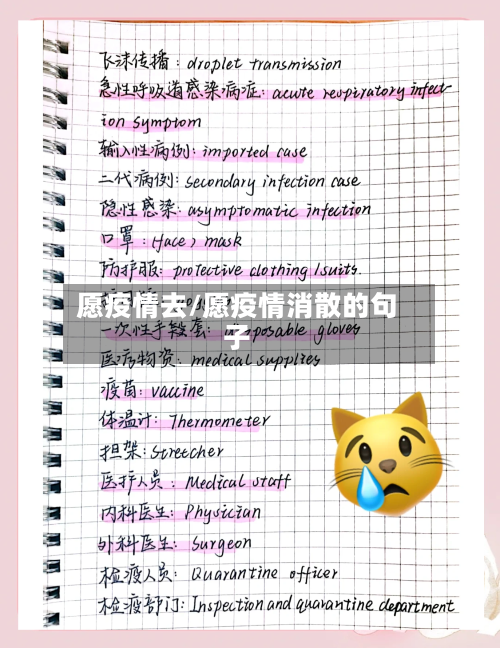 飞沫传播: droplet transmission
急性呼吸道感染病症: acute respiratory infect
ion symptom
输入性病例: imported case
二代病例: secondary infection case
隐性感染: asymptomatic infection
口罩: (face) mask
防护服: protective clothing / suits.
愿疫情去/愿疫情消散的句
子
一次性手套: gloves
医疗物资: medical supplies
疫苗: vaccine
体温计: Thermometer
担架: Stretcher
医护人员: Medical staff
内科医生: Physician
外科医生: Surgeon
检疫人员: Quarantine officer
检疫部门: Inspection and quarantine department